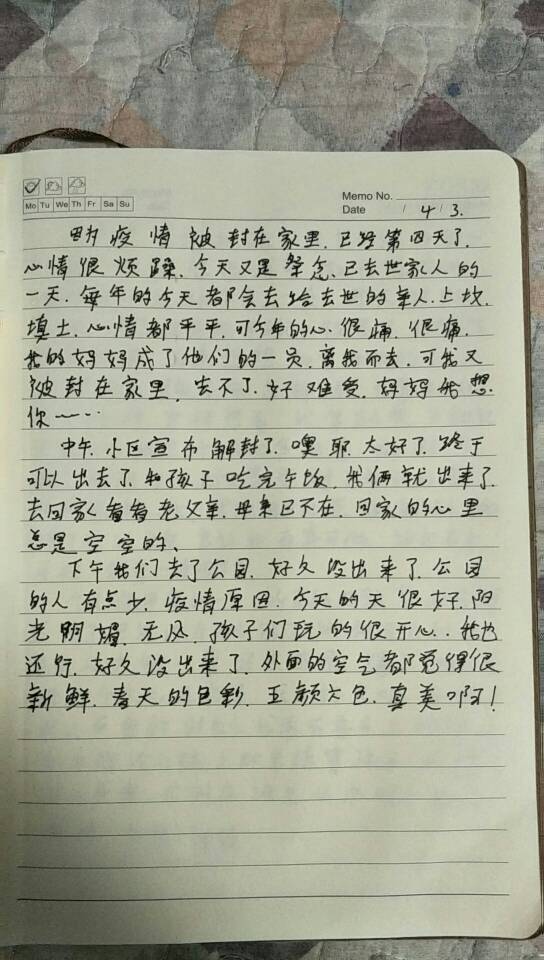 Memo No.
Mo Tu We Th Fr Sa Su
Date / 4 / 3.
因为疫情被封在家里.已经第四天了.
心情很烦躁.今天又是祭念.已去世家人的
一天.每年的今天都会去给去世的亲人.上坟.
填土.心情都平平.可今年的心.很痛.很痛.
我的妈妈成了他们的一员.离我而去.可我又
被封在家里.去不了.好难受.妈妈我想
你~~…
中午.小区宣布解封了.噢耶.太好了.终于
可以出去了.和孩子吃完午饭.我俩就出来了.
去回家看看老父亲.母亲已不在.回家的心里
总是空空的、
下午我们去了公园.好久没出来了.公园
的人有点少.疫情原因.今天的天很好.阳
光明媚.无风.孩子们玩的很开心.我也
还行.好久没出来了.外面的空气都觉得很
新鲜.春天的色彩.五颜六色.真美啊!